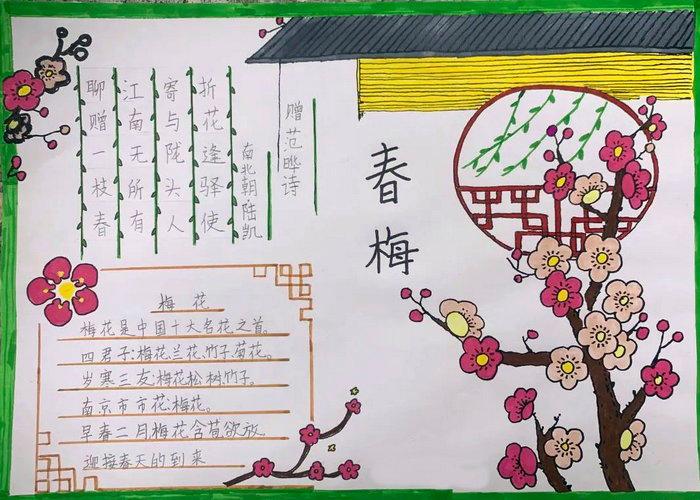 春梅
赠范晔诗
南北朝陆凯
折花逢驿使
寄与陇头人
江南无所有
聊赠一枝春
梅花
梅花是中国十大名花之首。
四君子:梅花、兰花、竹子、菊花。
岁寒三友:梅花松树、竹子。
南京市市花:梅花。
早春二月梅花含苞欲放.
迎接春天的到来